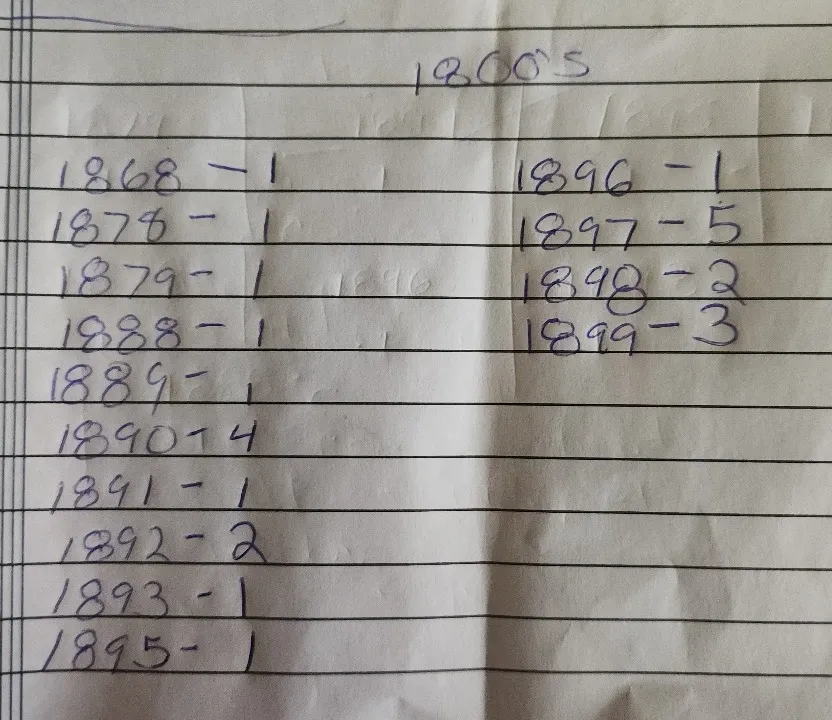 1800's
1868 - 1
1878 - 1
1879 - 1
1888 - 1
1889 - 1
1890 - 4
1891 - 1
1892 - 2
1893 - 1
1895 - 1
1896 - 1
1897 - 5
1898 - 2
1899 - 3